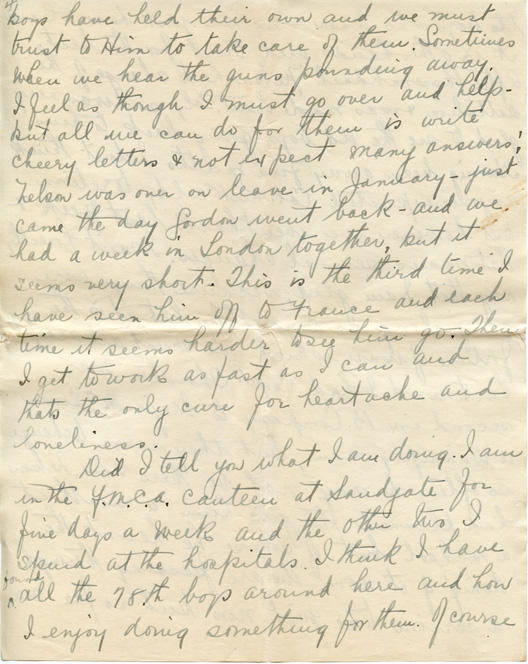 boys have held their own and we must
trust to Him to take care of them. Sometimes
when we hear the guns pounding away.
I feel as though I must go over and help-
but all we can do for them is write
cheery letters & not expect many answers,
Nelson was over on leave in January - just
came the day Gordon went back - and we
had a week in London together, but it
seems very short. This is the third time I
have seen him off to France and each
time it seems harder to see him go. Then
I get to work as fast as I can and
thats the only cure for heartache and
loneliness.
Did I tell you what I am doing. I am
in the Y.M.C.A. canteen at Sandgate for
five days a week and the other two I
spend at the hospitals. I think I have
found
all the 78th boys around here and how
I enjoy doing something for them. Of course